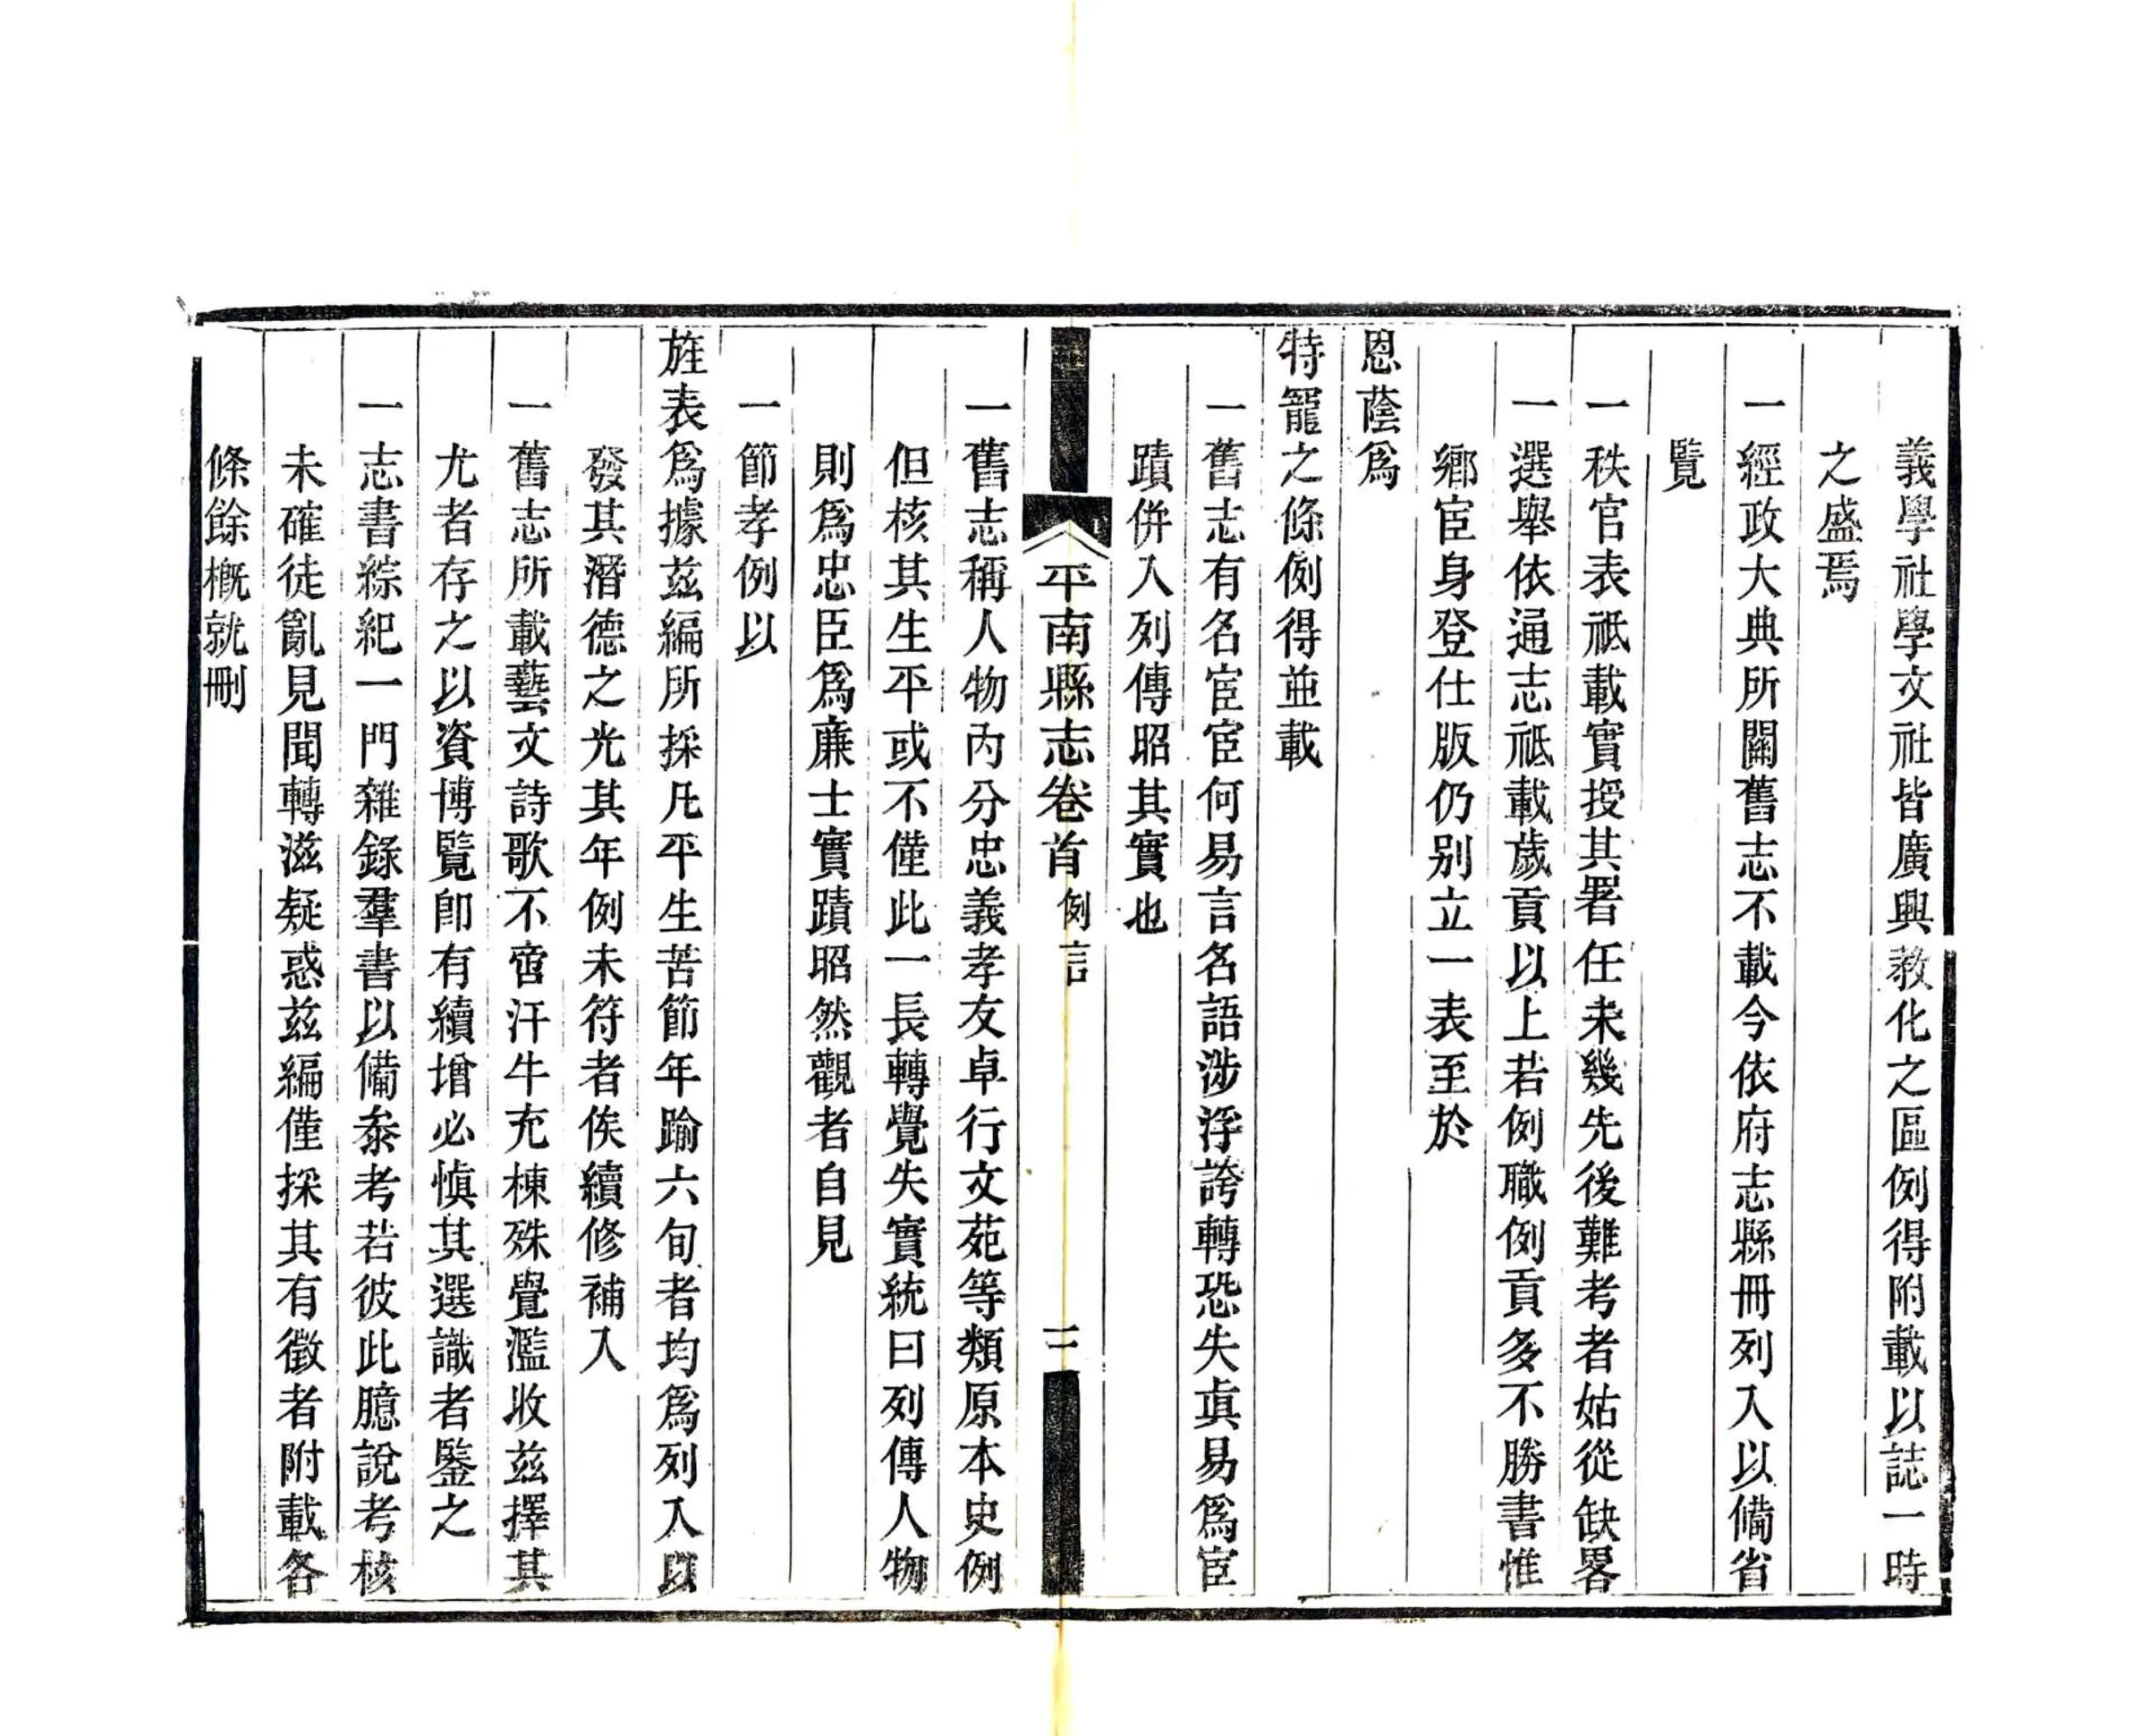 義學社學文社皆廣興教化之區例得附載以誌一時
之盛焉
一經政大典所關舊志不載今依府志縣冊列入以備省
覽
一秩官表祗載實授其署任未幾先後難考者姑從缺畧
一選舉依通志祗載歲貢以上若例職例貢多不勝書惟
鄉宦身登仕版仍别立一表至於
恩蔭爲
特寵之條例得並載
一舊志有名宦宦何易言名語涉浮誇轉恐失眞易爲宦
蹟併入列傳昭其實也
平南縣志卷首 例言 三
一舊志稱人物內分忠義孝友卓行文苑等類原本史例
但核其生平或不僅此一長轉覺失實統曰列傳人物
則爲忠臣爲廉士實蹟昭然觀者自見
一節孝例以
旌表爲據兹編所採凡平生苦節年踰六旬者均爲列入以
發其潛德之光其年例未符者俟續修補入
一舊志所載藝文詩歌不啻汗牛充棟殊覺濫收兹擇其
尤者存之以資博覽卽有續增必愼其選識者鑒之
一志書綜紀一門雜錄羣書以備叅考若彼此臆說考核
未確徒亂見聞轉滋疑惑兹編僅採其有徵者附載各
條餘槪就刪